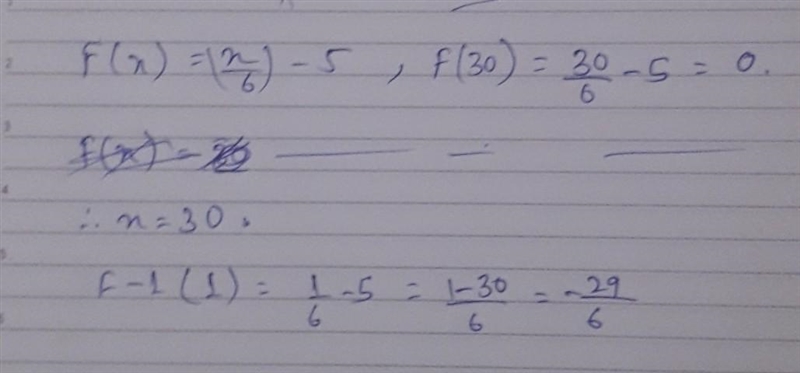 f(x) = (x/6) - 5 , f(30) = 30/6 - 5 = 0.
∴ x = 30.
f-1(1) = 1/6 - 5 = 1-30/6 = -29/6